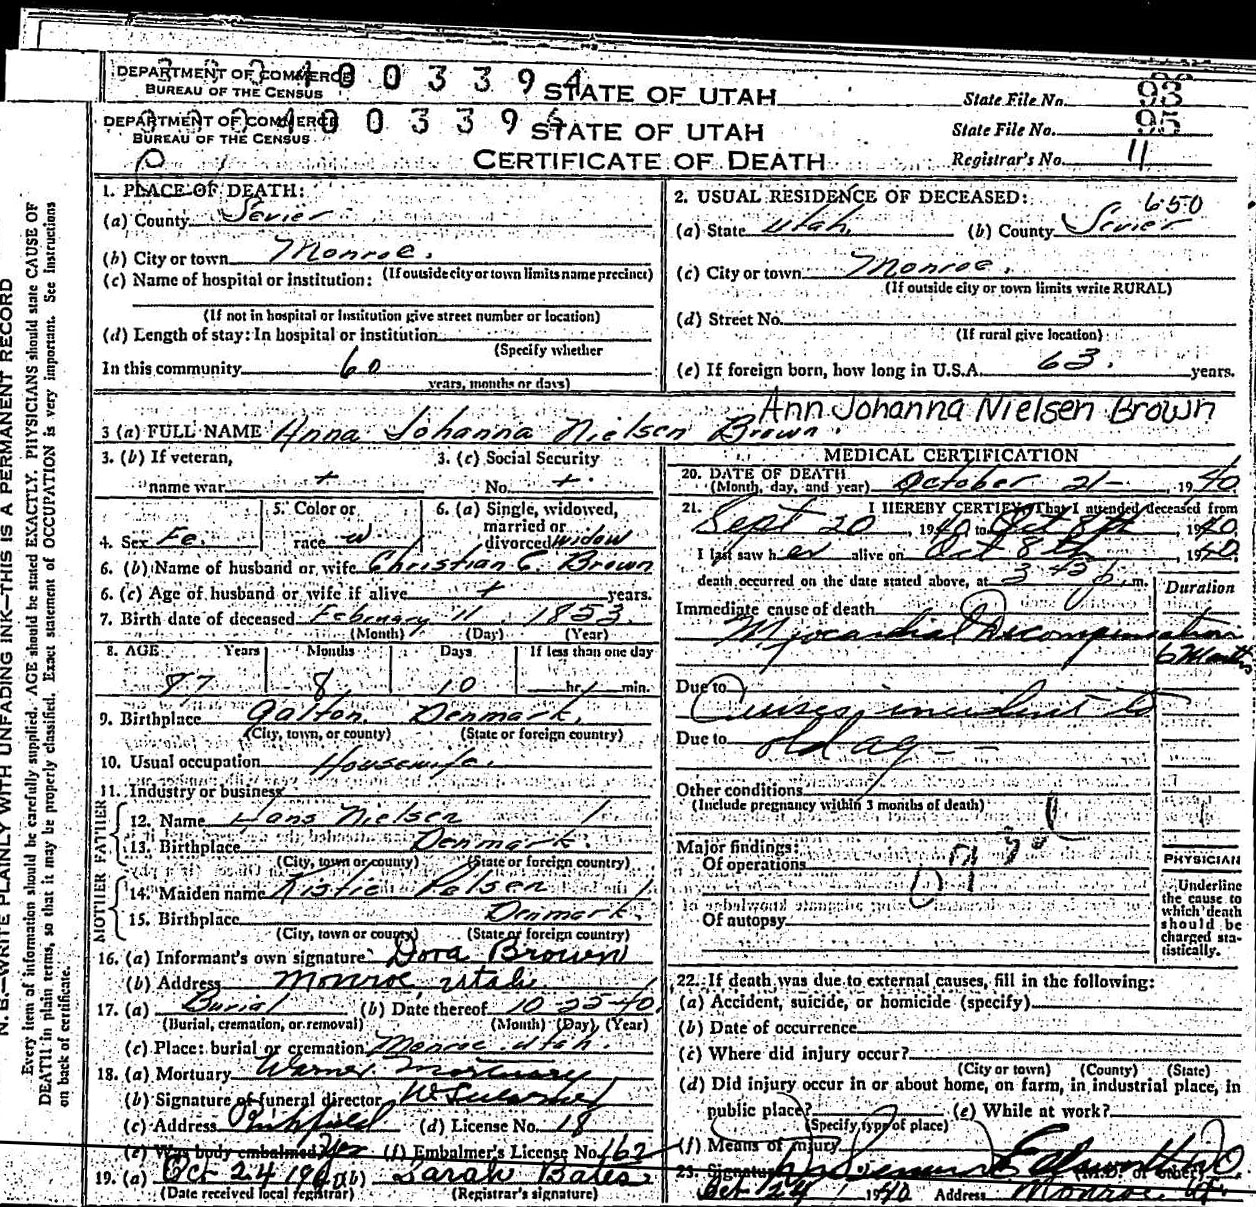 DEPARTMENT OF COMMERCE
BUREAU OF THE CENSUS
STATE OF UTAH
State File No. 93
DEPARTMENT OF COMMERCE
BUREAU OF THE CENSUS
STATE OF UTAH
State File No. 95
CERTIFICATE OF DEATH
Registrar's No. 11
N. B.—WRITE PLAINLY WITH UNFADING INK—THIS IS A PERMANENT RECORD
Every item of information should be carefully supplied. AGE should be stated EXACTLY. PHYSICIANS should state CAUSE OF
DEATH in plain terms, so that it may be properly classified. Exact statement of OCCUPATION is very important. See Instructions
on back of certificate.
1. PLACE OF DEATH:
(a) County Sevier
(b) City or town Monroe.
(If outside city or town limits name precinct)
(c) Name of hospital or institution:
(If not in hospital or Institution give street number or location)
(d) Length of stay: In hospital or institution
(Specify whether
In this community 60
years, months or days)
2. USUAL RESIDENCE OF DECEASED: 650
(a) State Utah (b) County Sevier
(c) City or town Monroe.
(If outside city or town limits write RURAL)
(d) Street No.
(If rural give location)
(e) If foreign born, how long in U.S.A. 63. years.
Ann Johanna Nielsen Brown
3 (a) FULL NAME Anna Johanna Nielsen Brown.
3. (b) If veteran, 3. (c) Social Security
name war + No. +
4. Sex Fe. 5. Color or race w 6. (a) Single, widowed, married or divorced widow
6. (b) Name of husband or wife Christian C. Brown
6. (c) Age of husband or wife if alive + years.
7. Birth date of deceased February 11, 1853.
(Month) (Day) (Year)
8. AGE Years Months Days If less than one day
87 8 10 hr. min.
9. Birthplace Denmark.
(City, town, or county) (State or foreign country)
10. Usual occupation Housewife.
11. Industry or business
FATHER
12. Name Hans Nielsen
13. Birthplace Denmark.
(City, town or county) (State or foreign country)
MOTHER
14. Maiden name Kistie
15. Birthplace Denmark.
(City, town or county) (State or foreign country)
16. (a) Informant's own signature Dora Brown
(b) Address Monroe, Utah
17. (a) Burial (b) Date thereof 10-25-40
(Burial, cremation, or removal) (Month) (Day) (Year)
(c) Place: burial or cremation Monroe Utah.
18. (a) Mortuary Warner Mortuary
(b) Signature of funeral director
(c) Address Richfield (d) License No. 18
(e) Was body embalmed? Yes (f) Embalmer's License No. 162
19. (a) Oct 24 1940 (b) Sarah Bates
(Date received local registrar) (Registrar's signature)
MEDICAL CERTIFICATION
20. DATE OF DEATH
(Month, day, and year) October 21-, 1940
21. I HEREBY CERTIFY, That I attended deceased from
Sept 20, 1940 to Oct 8th, 1940.
I last saw her alive on Oct 8th, 1940.
death occurred on the date stated above, at 3 p. m.
Duration
Immediate cause of death
Myocardial Decompensation
6 Months
Due to
incident to
Due to old age
Other conditions
(Include pregnancy within 3 months of death)
Major findings:
Of operations
Of autopsy
PHYSICIAN
Underline
the cause to
which death
should be
charged sta-
tistically.
22. If death was due to external causes, fill in the following:
(a) Accident, suicide, or homicide (specify)
(b) Date of occurrence
(c) Where did injury occur?
(City or town) (County) (State)
(d) Did injury occur in or about home, on farm, in industrial place, in
public place? (e) While at work?
(Specify type of place)
(f) Means of injury
23. Signature
Oct 24 1940 Address Monroe Ut.